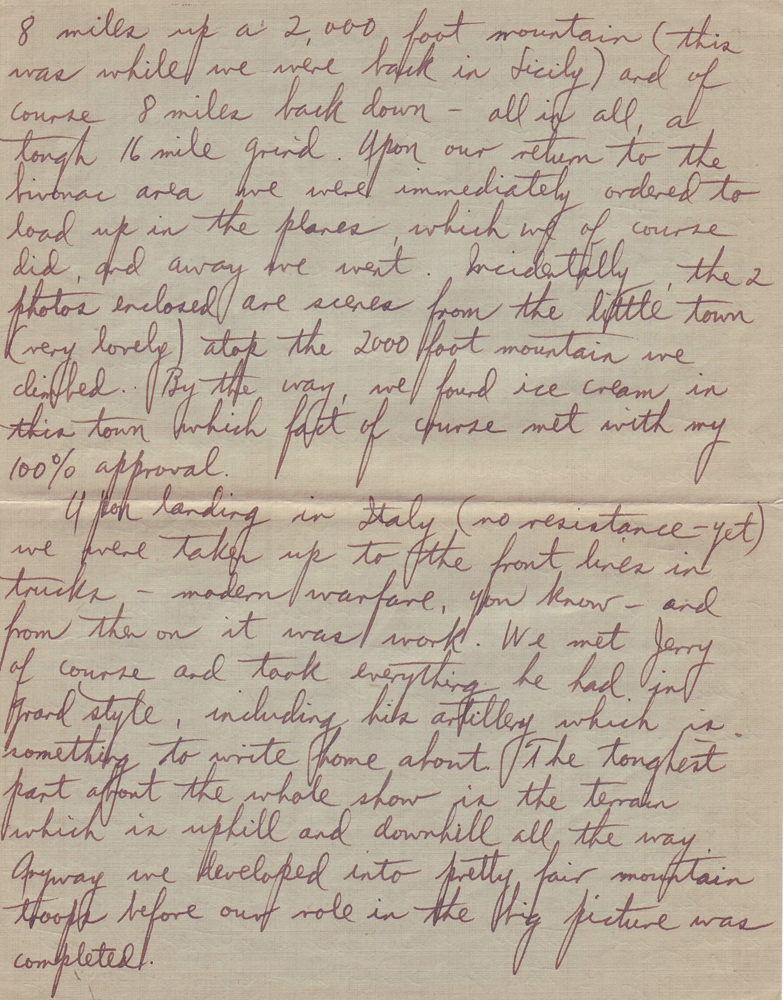 8 miles up a 2,000 foot mountain (this
was while we were back in Sicily) and of
course 8 miles back down - all in all, a
tough 16 mile grind. Upon our return to the
bivouac area we were immediately ordered to
load up in the planes, which we of course
did, and away we went. Incidentally, the 2
photos enclosed are scenes from the little town
(very lovely) atop the 2000 foot mountain we
climbed.. By the way, we found ice cream in
this town which fact of course met with my
100% approval.
Upon landing in Italy (no resistance-yet)
we were taken up to the front lines in
trucks - modern warfare, you know - and
from then on it was work. We met Jerry
of course and took everything he had in
grand style, including his artillery which is
something to write home about. The toughest
part about the whole show is the terrain
which is uphill and downhill all the way.
Anyway we developed into pretty fair mountain
troops before our role in the big picture was
completed.